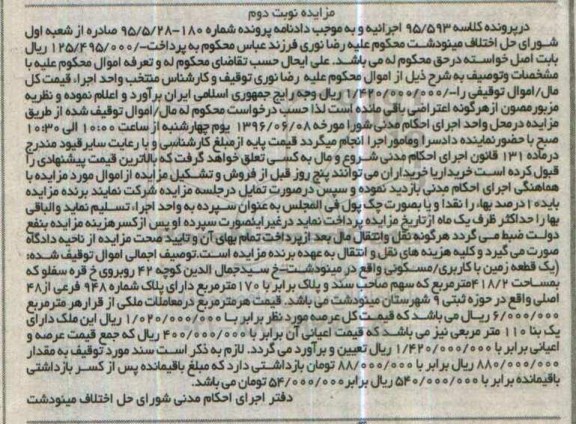 مزایده نوبت دوم
درپرونده کلاسه ۹۵/۵۹۳ اجرائیه و به موجب دادنامه پرونده شماره ۱۸۰-۹۵/۵/۲۸ صادره از شعبه اول
شورای حل اختلاف مینودشت محکوم علیه رضا نوری فرزند عباس محکوم به پرداخت-/۱۲۵/۴۹۵/۰۰۰ ریال
بابت اصل خواسته درحق محکوم له می باشد. علی ایحال حسب تقاضای محکوم له و تعرفه اموال محکوم علیه با
مشخصات وتوصیف به شرح ذیل از اموال محکوم علیه رضا نوری توقیف و کارشناس منتخب واحد اجرا، قیمت کل
مال/اموال توقیفی را-/۱/۴۲۰/۰۰۰/۰۰۰ ریال وجه رایج جمهوری اسلامی ایران برآورد و اعلام نموده و نظریه
مزبورمصون ازهرگونه اعتراضی باقی مانده است لذا حسب درخواست محکوم له مال/اموال توقیف شده از طریق
مزایده درمحل واحد اجرای احکام مدنی شورا مورخه ۱۳۹۶/۰۶/۰۸ یوم چهارشنبه از ساعت ۱۰:۰۰ الی ۱۰:۳۰
صبح با حضورنماینده دادسرا ومامور اجرا انجام میگردد قیمت پایه ازمبلغ کارشناسی و با رعایت سایرقیود مندرج
درماده ۱۳۱ قانون اجرای احکام مدنی شروع و مال به کسی تعلق خواهد گرفت که بالاترین قیمت پیشنهادی را
قبول کرده است خریداریا خریداران می توانند پنج روز قبل از فروش و تشکیل مزایده ازاموال مورد مزایده با
هماهنگی اجرای احکام مدنی بازدید نموده و سپس درصورت تمایل درجلسه مزایده شرکت نمایند برنده مزایده
باید۱۰درصد بها، را نقدا و یا بصورت چک پول فی المجلس به عنوان سپرده به واحد اجرا، تسلیم نماید والباقی
بها را حداکثر ظرف یک ماه ازتاریخ مزایده پرداخت نماید درغیراینصورت سپرده او پس ازکسرهزینه مزایده بنفع
دولت ضبط می گردد هرگونه نقل وانتقال مال بعد ازپرداخت تمام بهای آن و تایید صحت مزایده از ناحیه دادگاه
صورت می گیرد و کلیه هزینه های نقل و انتقال به عهده برنده مزایده است.توصیف اجمالی اموال توقیف شده:
(یک قطعه زمین با کاربری/مسکونی واقع در مینودشت-خ سیدجمال الدین کوچه ۴۲ روبروی خ قره سفلو که
بمساحت ۴۱۸/۲مترمربع که سهم صاحب سند و پلاک برابر با ۱۷۰مترمربع دارای پلاک شماره ۹۴۸ فرعی از۴۸
اصلی واقع در حوزه ثبتی ۹ شهرستان مینودشت می باشد. قیمت هرمترمربع درمعاملات ملکی از قرارهر مترمربع
۶/۰۰۰/۰۰۰ ریال می باشد که قیمت کل عرصه مورد نظر برابر با ۱/۰۲۰/۰۰۰/۰۰۰ ریال این ملک دارای
یک بنا ۱۱۰ متر مربعی نیز می باشد که قیمت اعیانی آن برابر با ۴۰۰/۰۰۰/۰۰۰ ریال که جمع قیمت عرصه و
اعیانی برابر با ۱/۴۲۰/۰۰۰/۰۰۰ ریال تعیین و برآورد می گردد. لازم به ذکر است سند مورد توقیف به مقدار
۸۸۰/۰۰۰/۰۰۰ ریال برابر با ۸۸/۰۰۰/۰۰۰ تومان بازداشتی دارد که مبلغ باقیمانده پس از کسر بازداشتی
باقیمانده برابر با ۵۴۰/۰۰۰/۰۰۰ ریال برابر ۵۴/۰۰۰/۰۰۰ تومان می باشد.
دفتر اجرای احکام مدنی شورای حل اختلاف مینودشت